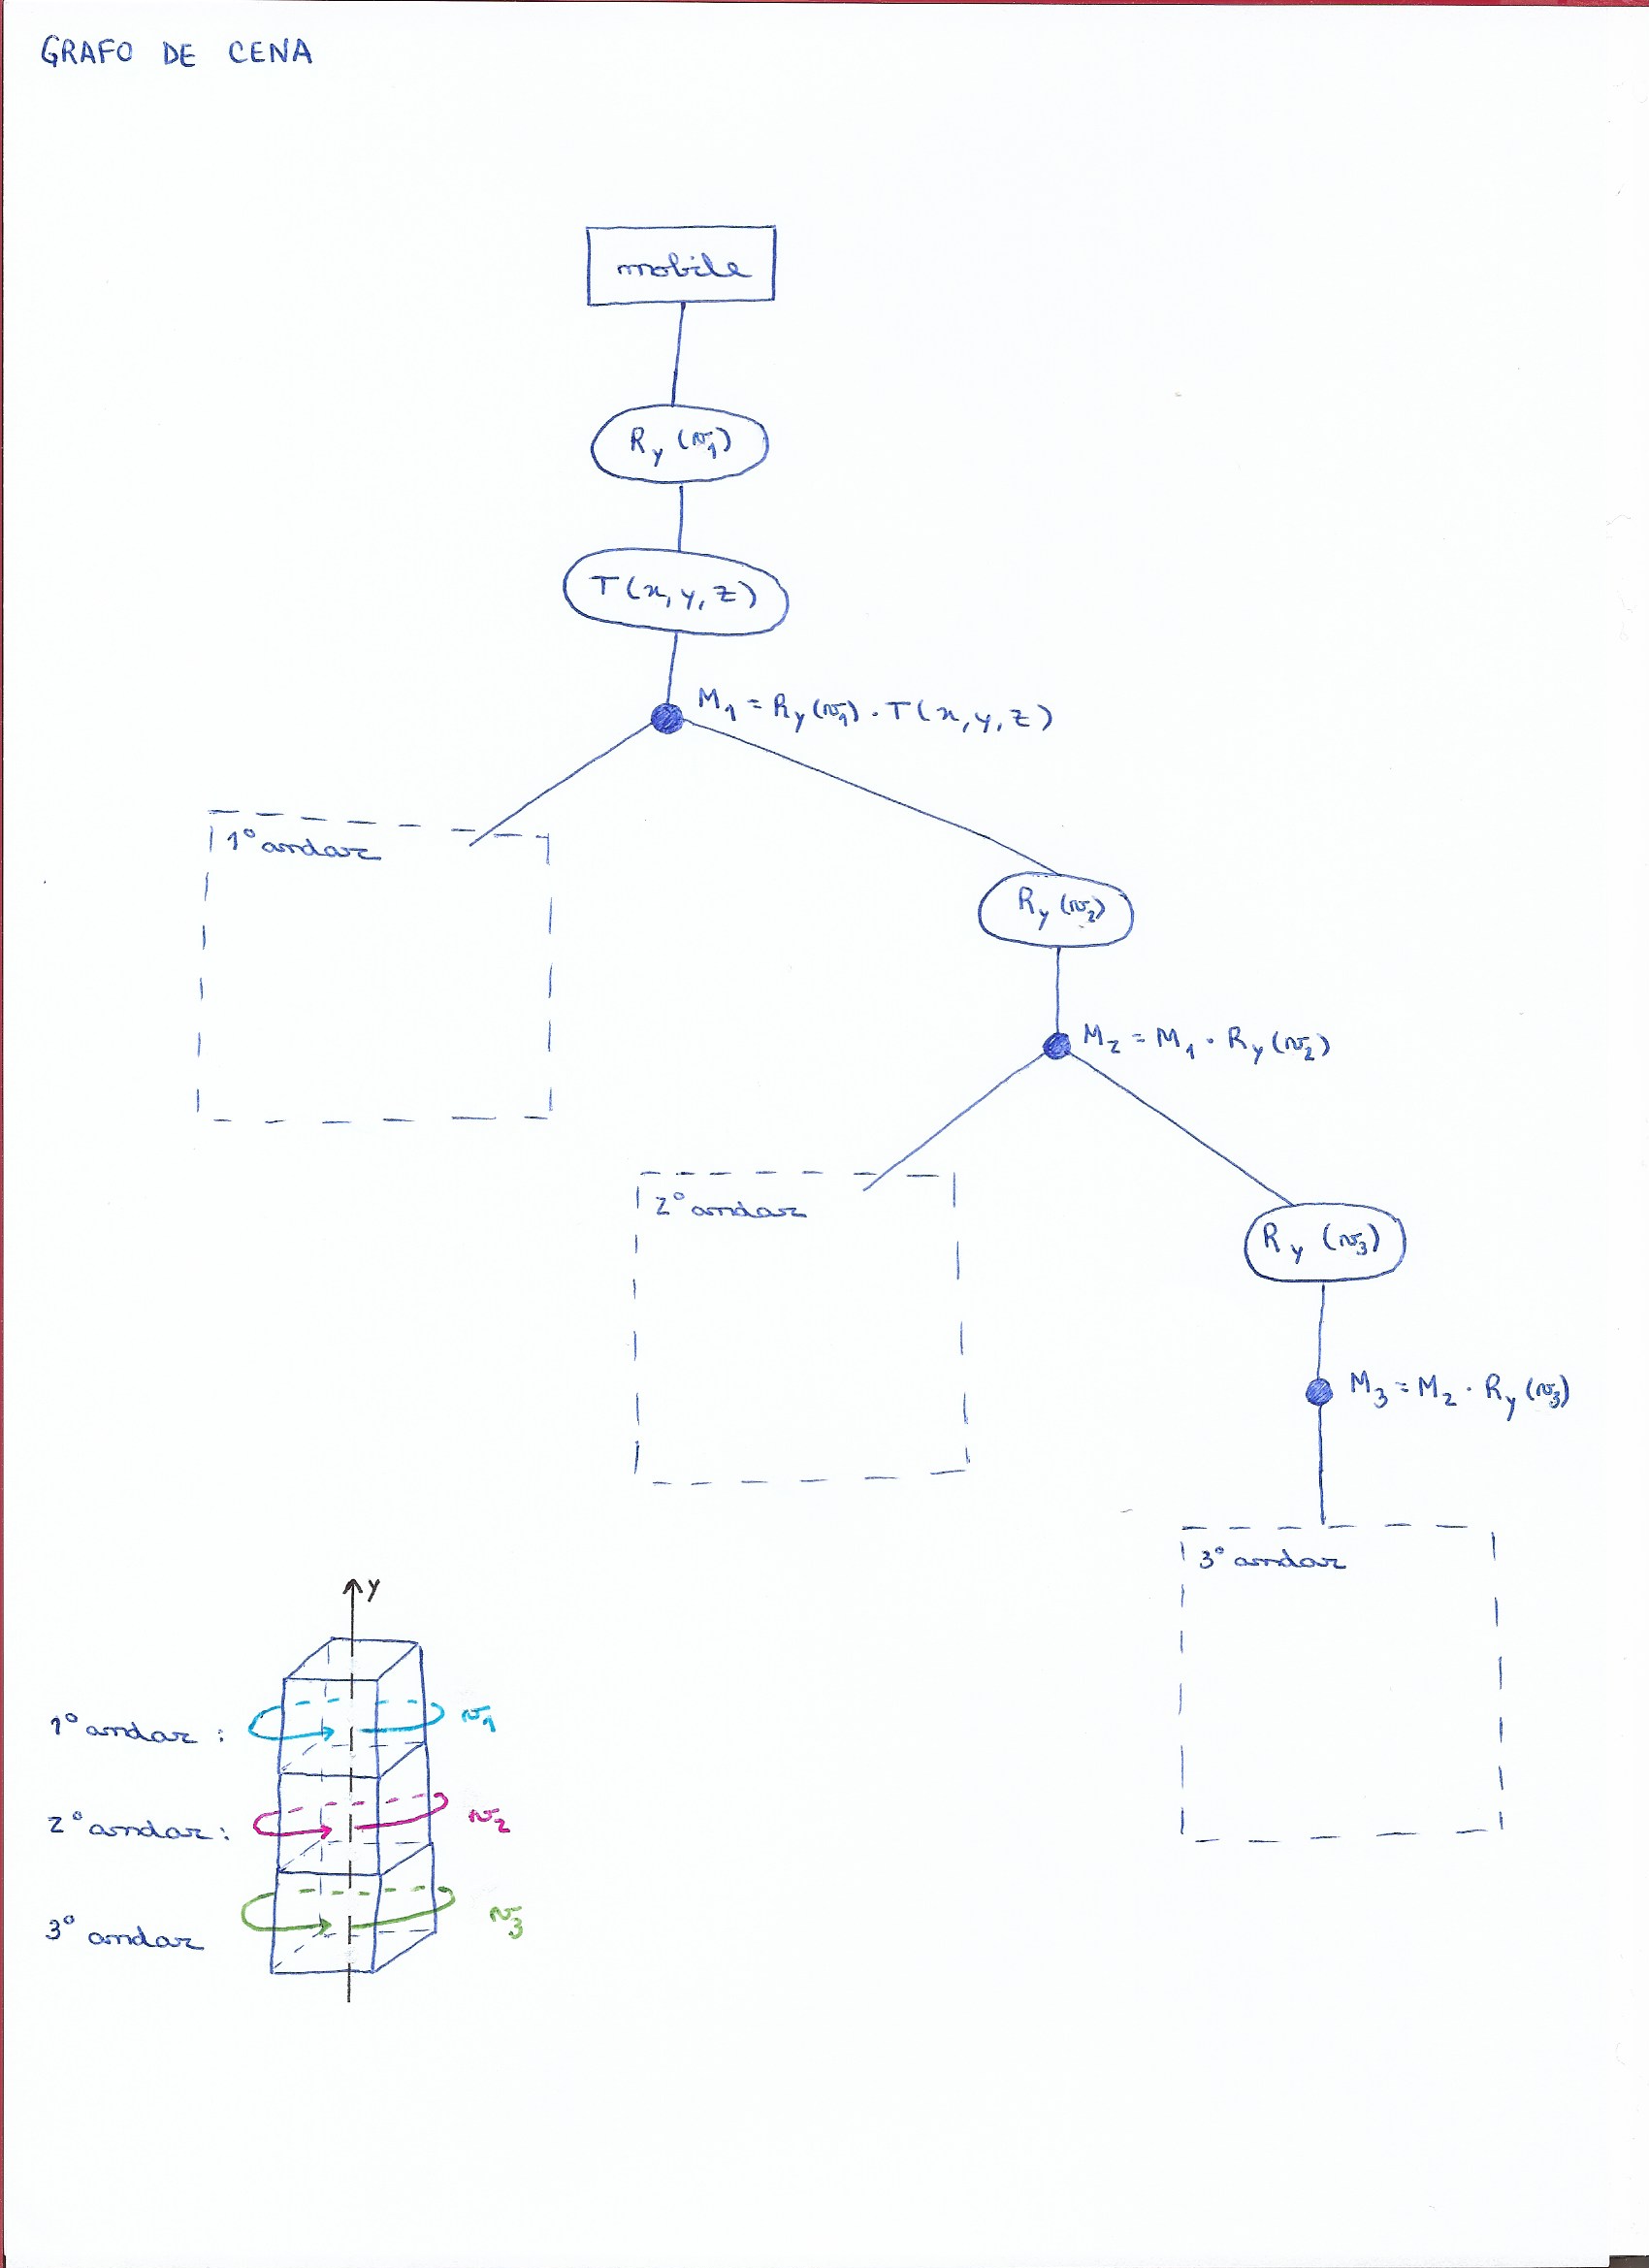 GRAFO DE CENA
mobile
Ry (v1)
T(x, y, z)
M1 = Ry (v1) . T(x, y, z)
1º andar
Ry (v2)
M2 = M1 . Ry (v2)
2º andar
Ry (v3)
M3 = M2 . Ry (v3)
3º andar
y
1º andar : v1
2º andar : v2
3º andar v3